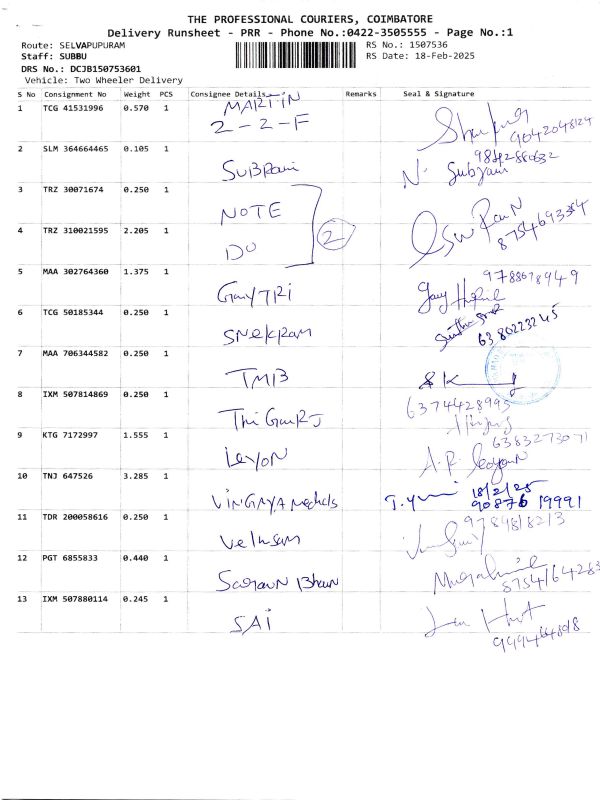 THE PROFESSIONAL COURIERS, COIMBATORE
Delivery Runsheet - PRR - Phone No.:0422-3505555 - Page No.:1
Route: SELVAPUPURAM
RS No.: 1507536
Staff: SUBBU
RS Date: 18-Feb-2025
DRS No.: DCJB150753601
Vehicle: Two Wheeler Delivery
S No Consignment No Weight PCS Consignee Details Remarks Seal & Signature
1 TCG 41531996 0.570 1 MARTIN
2-2-F
9042048124
2 SLM 364664465 0.105 1 SUBRani
9842880632
N. Subjani
3 TRZ 30071674 0.250 1 NOTE
2
4 TRZ 310021595 2.205 1 DO
8754693354
5 MAA 302764360 1.375 1 GayTRi
9788678949
6 TCG 50185344 0.250 1 SNeKRam
63 80223245
7 MAA 706344582 0.250 1 TMB
SK
8 IXM 507814869 0.250 1
6374428995
9 KTG 7172997 1.555 1 LeyoN
6383273071
10 TNJ 647526 3.285 1 VINGNYA Medicals
18/2/25
90876 19991
11 TDR 200058616 0.250 1
9784818213
12 PGT 6855833 0.440 1 SaravN Bhavan
13 IXM 507880114 0.245 1 SAi